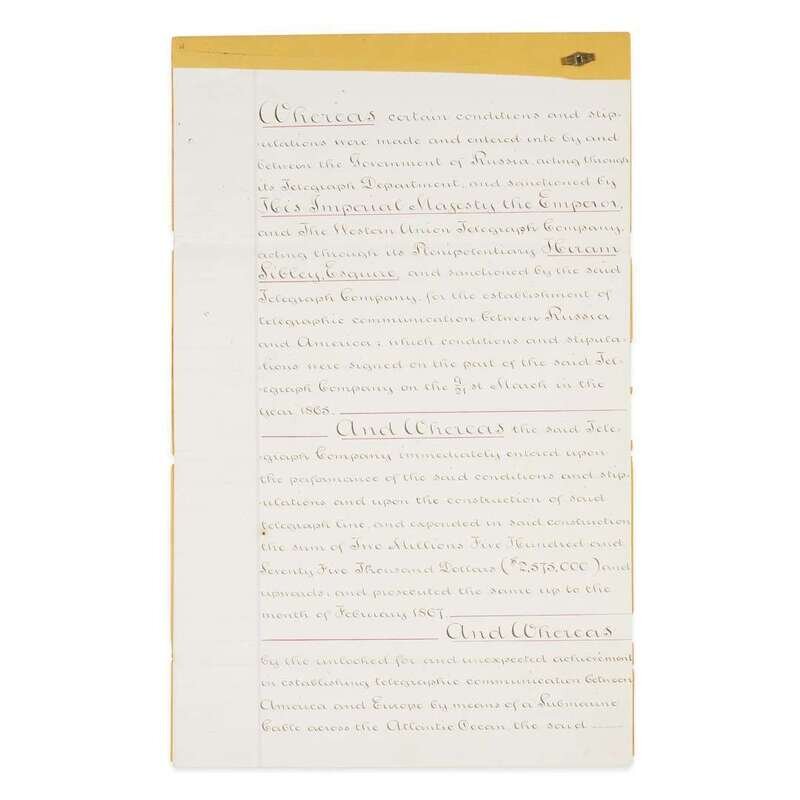 Whereas certain conditions and stip-
ulations were made and entered into by and
between the Government of Russia, acting through
its Telegraph Department, and sanctioned by
His Imperial Majesty the Emperor,
and The Western Union Telegraph Company,
acting through its Plenipotentiary Hiram
Sibley, Esquire, and sanctioned by the said
Telegraph Company, for the establishment of
telegraphic communication between Russia
and America; which conditions and stipula-
tions were signed on the part of the said Tel-
egraph Company on the 9/21 st March in the
Year 1865.
And Whereas the said Tele-
graph Company immediately entered upon
the performance of the said conditions and stip-
ulations and upon the construction of said
telegraph line, and expended in said construction
the sum of Two Millions Five Hundred and
Seventy Five Thousand Dollars ($2,575,000) and
upwards, and prosecuted the same up to the
month of February 1867.
And Whereas
by the unlooked for and unexpected achievement
in establishing telegraphic communication between
America and Europe by means of a Submarine
Cable across the Atlantic Ocean, the said